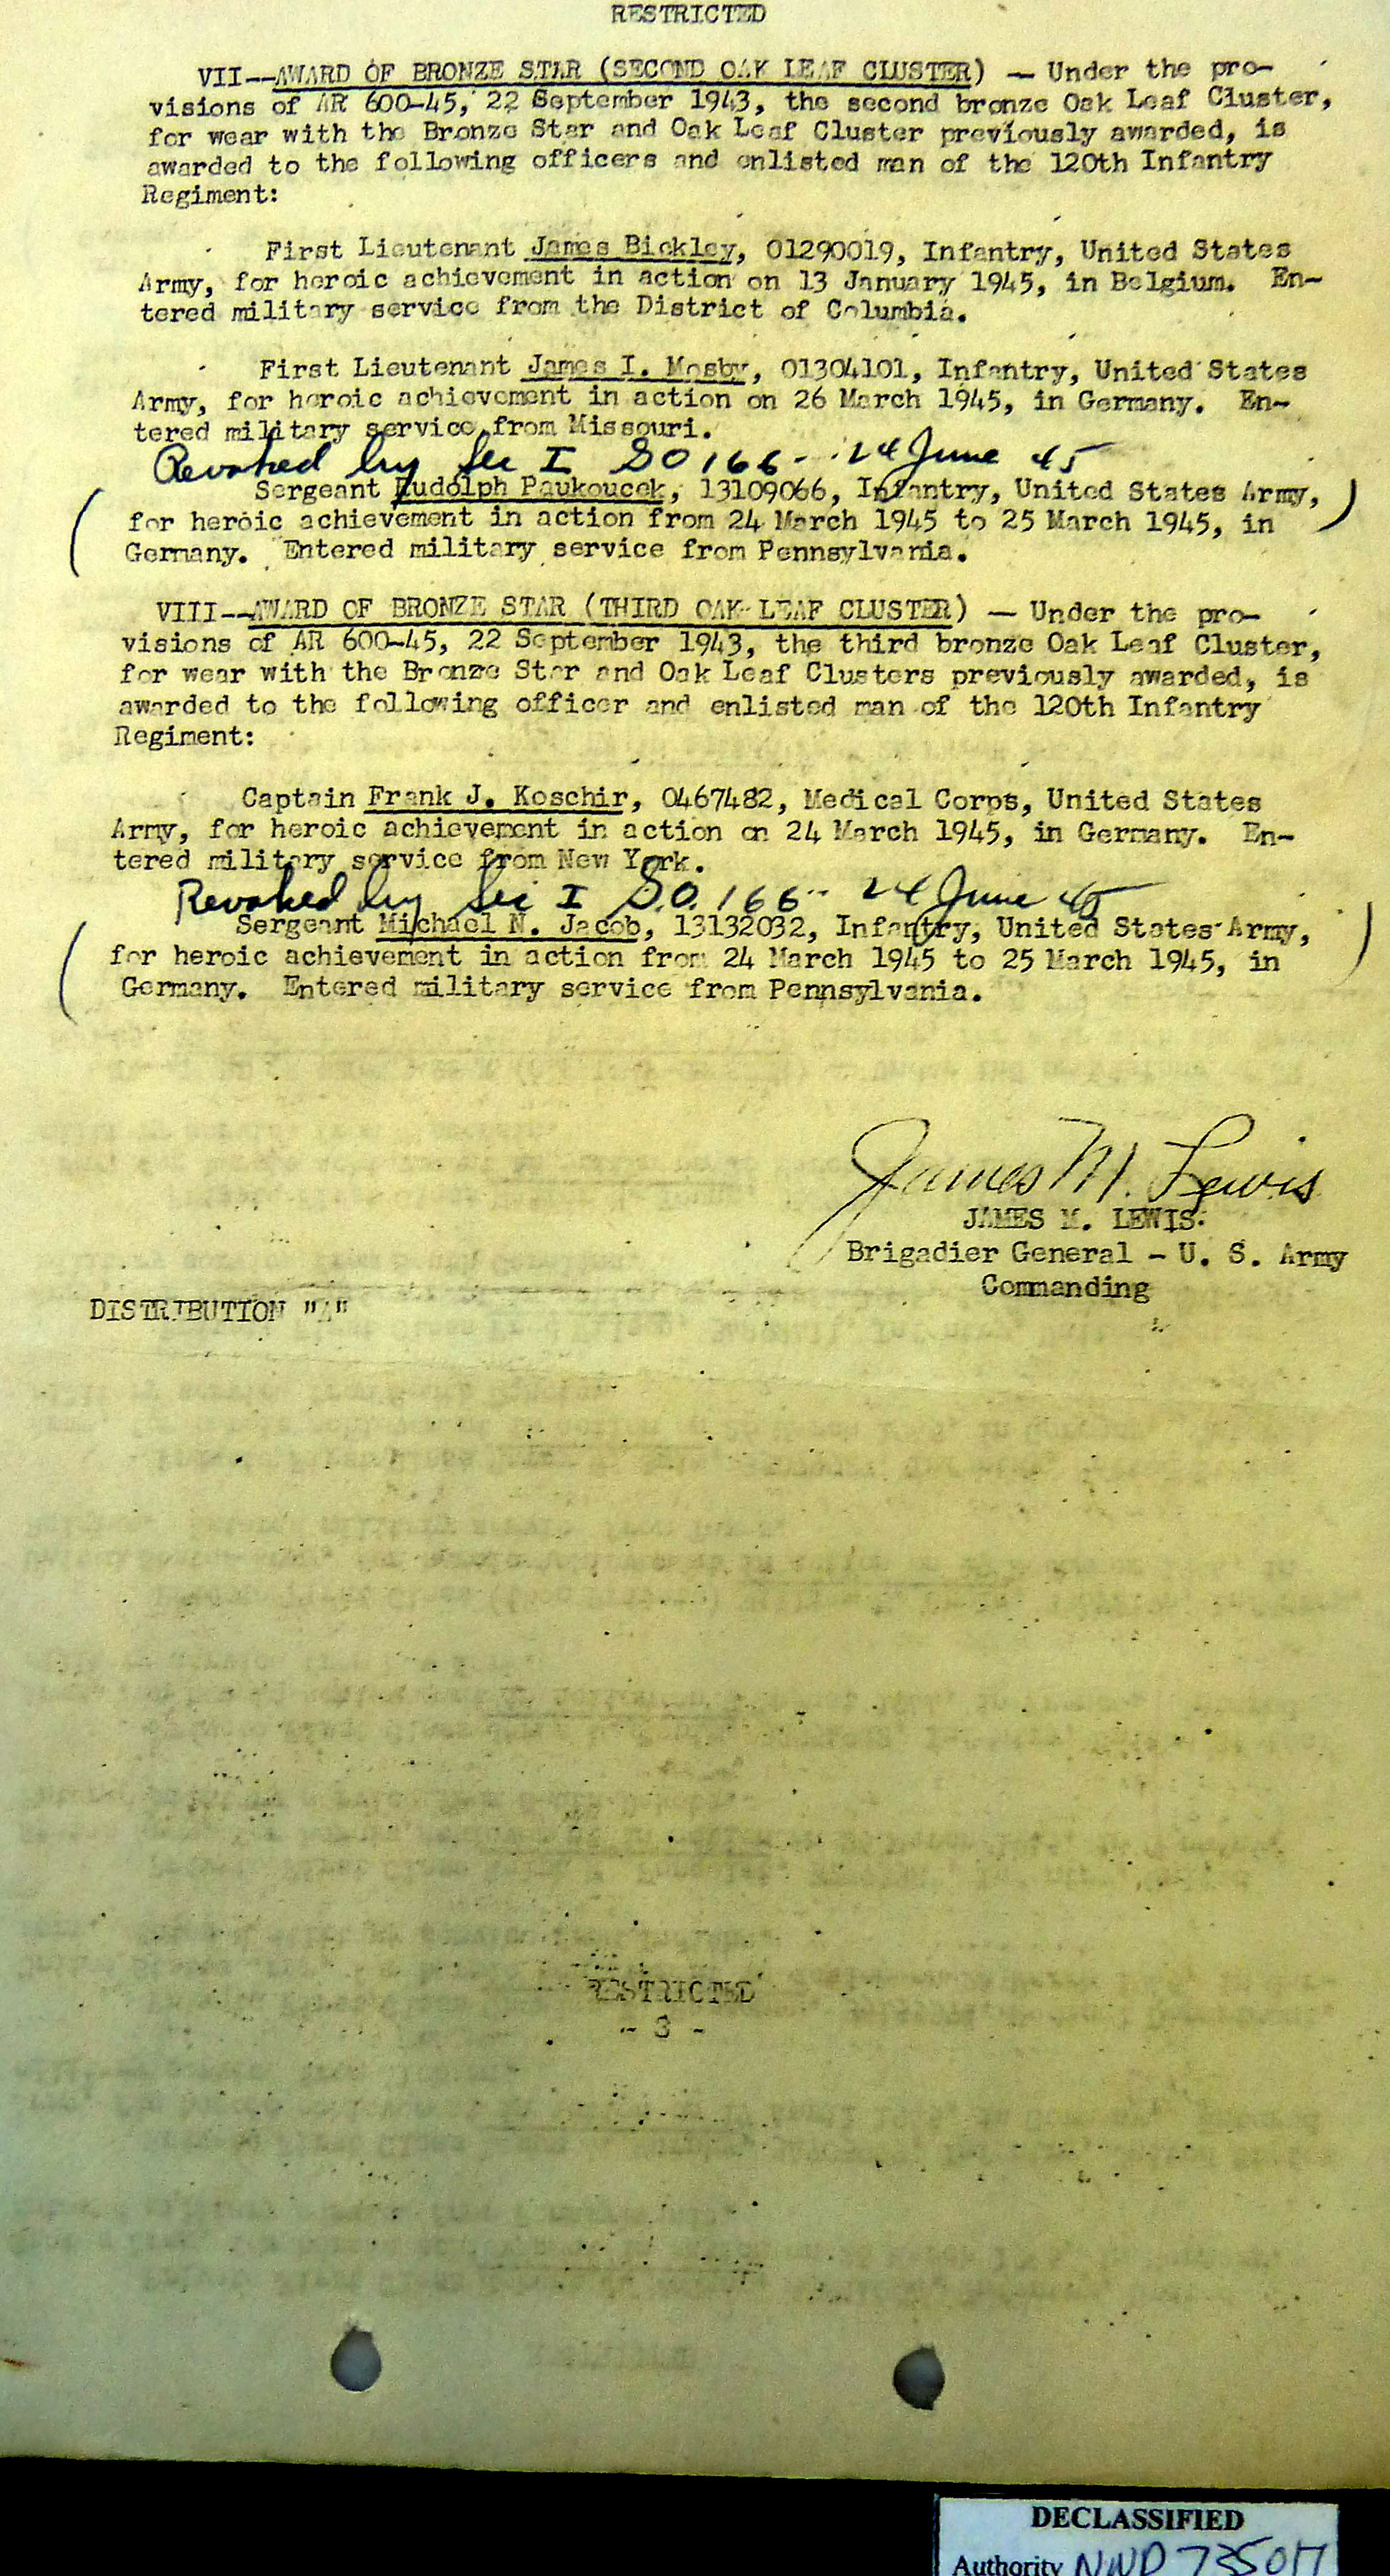 RESTRICTED
VII--AWARD OF BRONZE STAR (SECOND OAK LEAF CLUSTER) — Under the pro-
visions of AR 600-45, 22 September 1943, the second bronze Oak Leaf Cluster,
for wear with the Bronze Star and Oak Leaf Cluster previously awarded, is
awarded to the following officers and enlisted man of the 120th Infantry
Regiment:
First Lieutenant James Bickley, 01290019, Infantry, United States
Army, for heroic achievement in action on 13 January 1945, in Belgium. En-
tered military service from the District of Columbia.
First Lieutenant James I. Mosby, 01304101, Infantry, United States
Army, for heroic achievement in action on 26 March 1945, in Germany. En-
tered military service from Missouri.
Revoked by Sec I SO 166 - 24 June 45
(Sergeant Rudolph Paukoucek, 13109066, Infantry, United States Army,)
for heroic achievement in action from 24 March 1945 to 25 March 1945, in
Germany. Entered military service from Pennsylvania.
VIII--AWARD OF BRONZE STAR (THIRD OAK LEAF CLUSTER) — Under the pro-
visions of AR 600-45, 22 September 1943, the third bronze Oak Leaf Cluster,
for wear with the Bronze Star and Oak Leaf Clusters previously awarded, is
awarded to the following officer and enlisted man of the 120th Infantry
Regiment:
Captain Frank J. Koschir, 0467482, Medical Corps, United States
Army, for heroic achievement in action on 24 March 1945, in Germany. En-
tered military service from New York.
Revoked by Sec I S.O. 166 - 24 June 45
(Sergeant Michael N. Jacob, 13132032, Infantry, United States Army,)
for heroic achievement in action from 24 March 1945 to 25 March 1945, in
Germany. Entered military service from Pennsylvania.
James M. Lewis
JAMES M. LEWIS
Brigadier General - U. S. Army
Commanding
DISTRIBUTION "A"
RESTRICTED
- 3 -
DECLASSIFIED
Authority NND 735017